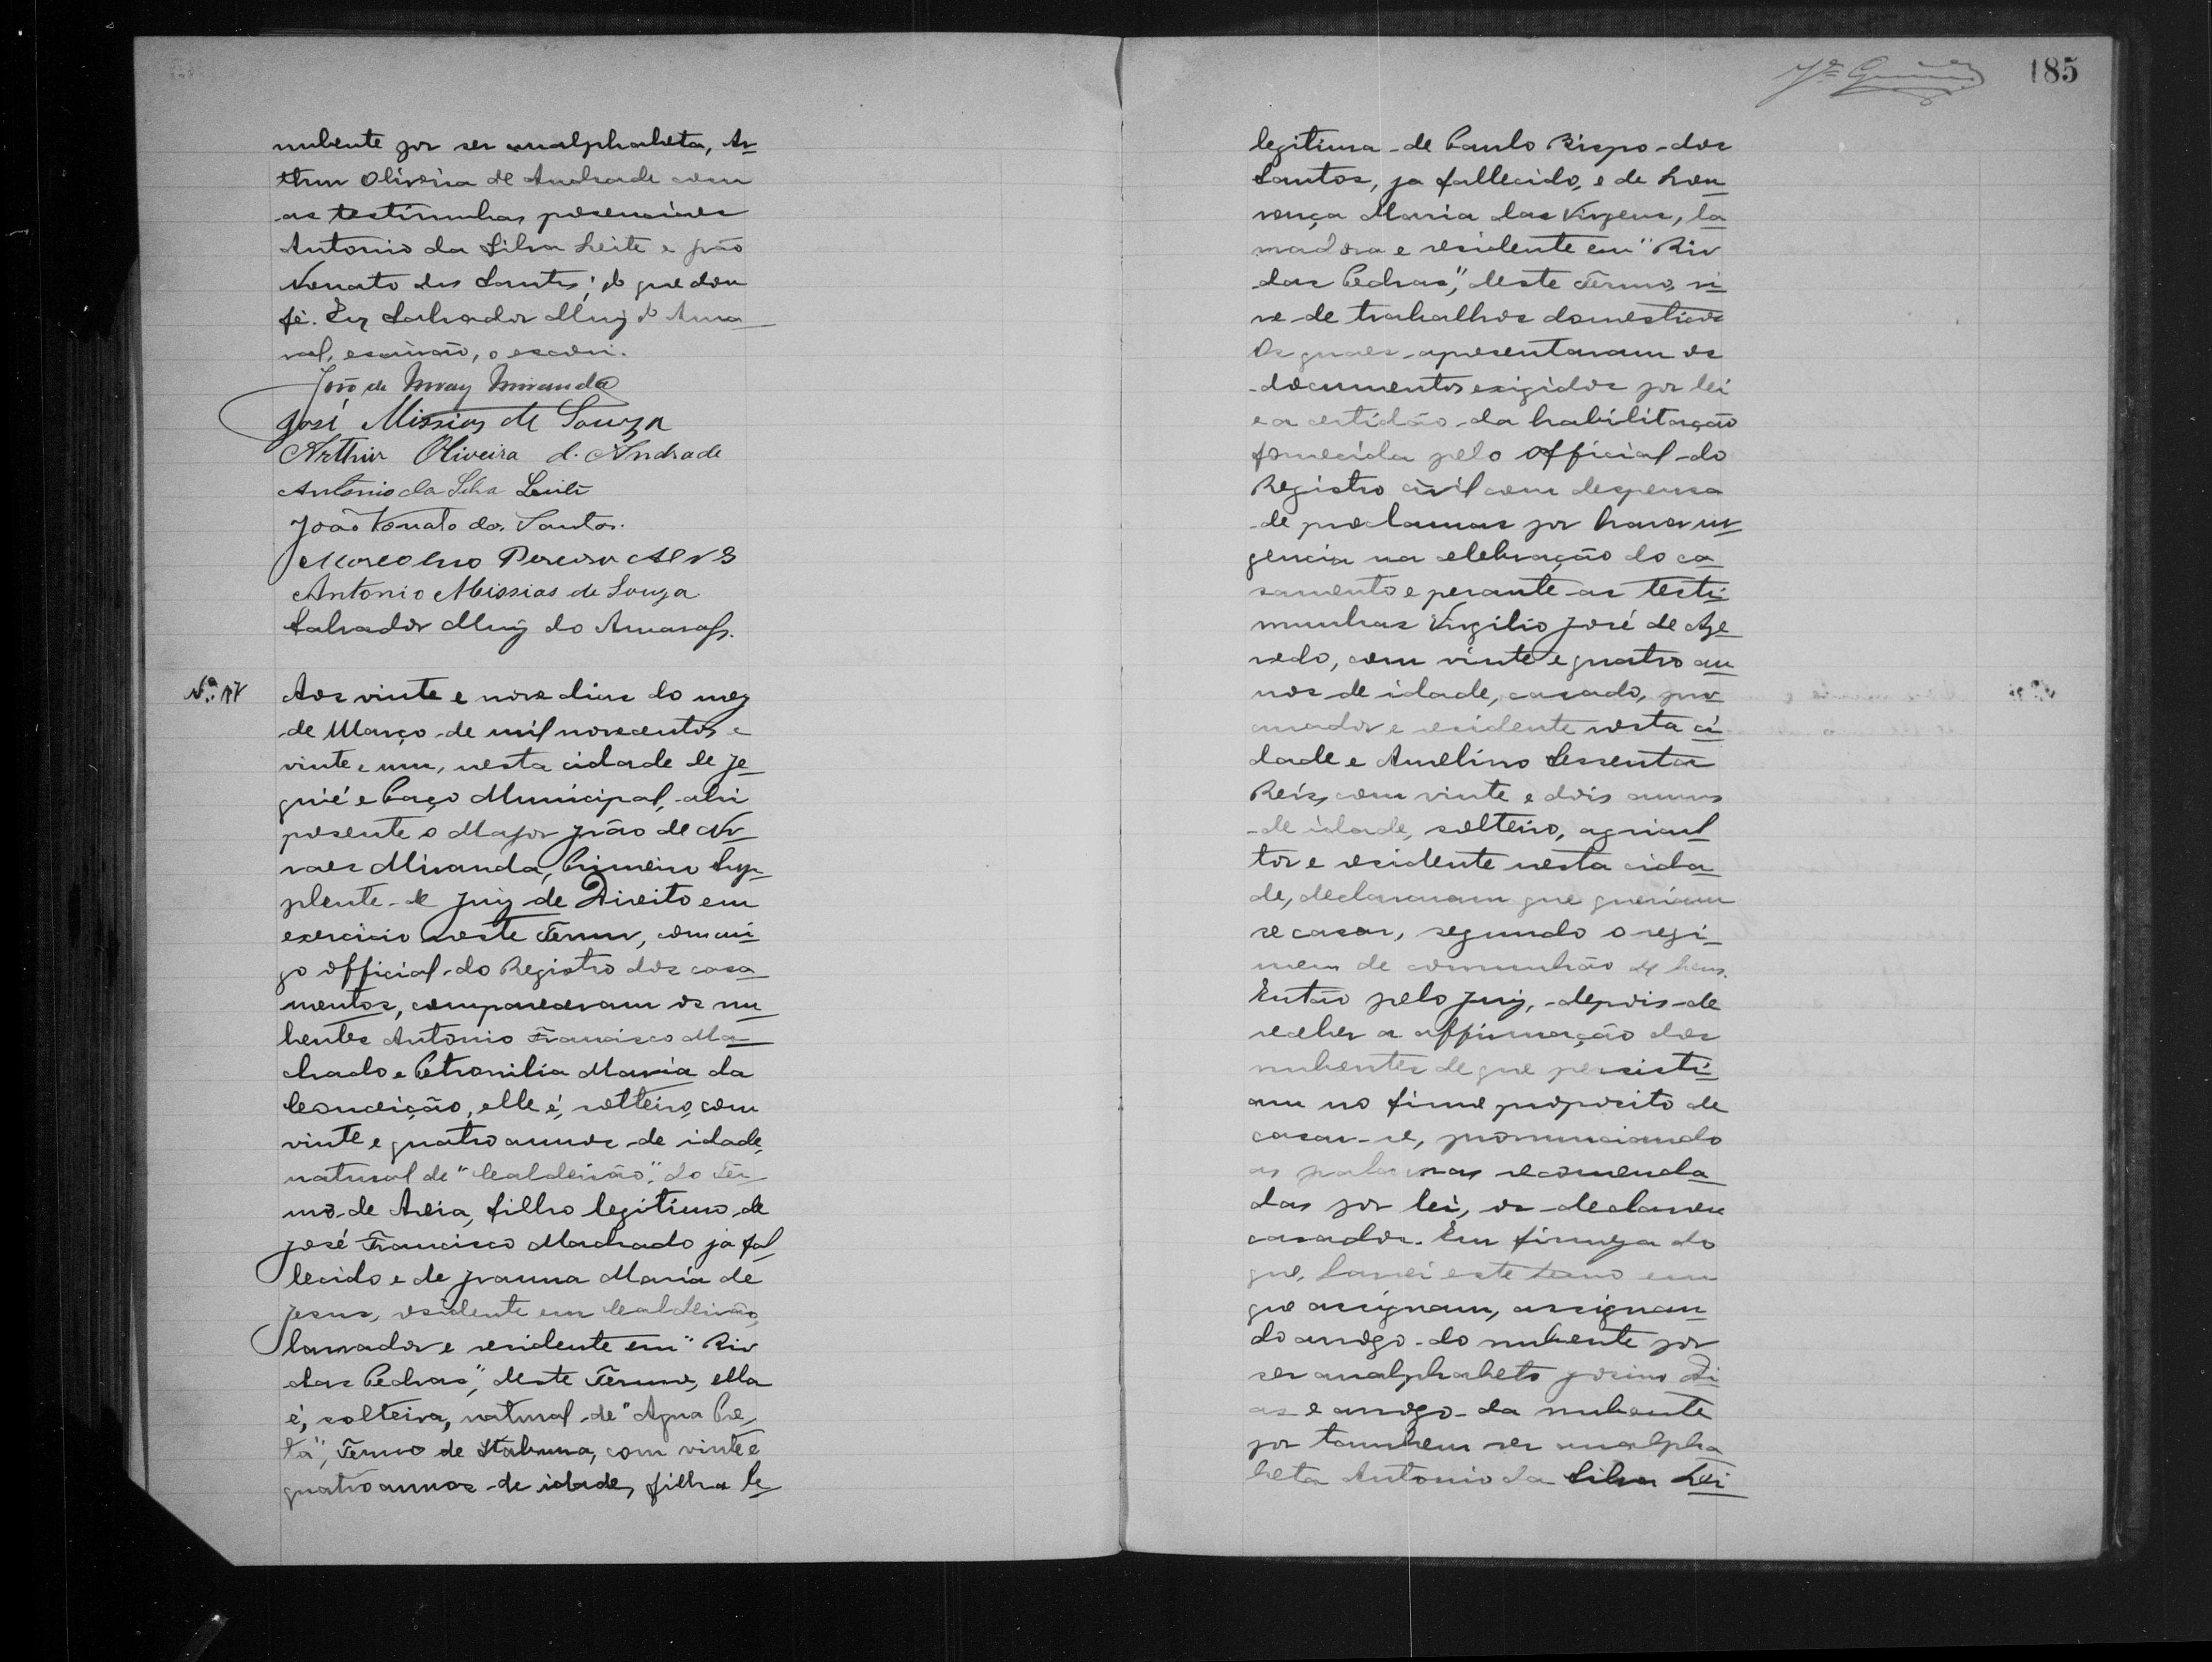 nubente por ser analphabeta, Ar
thur Oliveira de Andrade com
as testimunhas presenciaes
Antonio da Silva Leite e João
Nonato dos Santos; do que dou
fé. Eu Salvador Muniz do Ama
ral, escrivão, o escrevi.
João de Moraes Miranda
José Missias de Souza
Arthur Oliveira d. Andrade
Antonio da Silva Leite
João Nonato dos Santos.
Marcolino Pereira Alves
Antonio Meissias de Souza
Salvador Muniz do Amaral.
Nº 17
Aos vinte e nove dias do mez
de Março de mil novecentos e
vinte e um, nesta cidade de Je
quié e Paço Municipal, ahi
presente o Major João de Mo
raes Miranda, Primeiro Sup
plente de Juiz de Direito em
exercicio neste Termo, commi
go official do Registro dos casa
mentos, compareceram os nu
bentes Antonio Francisco Ma
chado e Petronilia Maria da
Conceição, elle é, solteiro, com
vinte e quatro annos de idade,
natural de "Caldeirão", do Ter
mo de Areia, filho legitimo de
José Francisco Machado já fal
lecido e de Joanna Maria de
Jesus, residente em Caldeirão,
lavrador e residente em "Rio
das Pedras", deste Termo, ella
é, solteira, natural de "Agua Pre
ta", Termo de Itabuna, com vinte e
quatro annos de idade, filha le
185
legitima de Paulo Bispo dos
Santos, ja fallecido, e de Lou
rença Maria das Virgens, la
vradora e residente em "Rio
das Pedras", deste Termo, vi
ve de trabalhos domesticos
Os quaes apresentaram os
documentos exigidos por lei
e a certidão da habilitação
fornecida pelo official do
Registro civil com despensa
de proclamas por haver ur
gencia na celebração do ca
samento e perante as testi
munhas Virgilio José de Aze
vedo, com vinte e quatro an
nos de idade, casado,
e residente nesta ci
dade e Amelino Sessenta
Reis, com vinte e dois annos
de idade, solteiro, agricul
tor e residente nesta cida
de, declararam que queriam
se casar, segundo o regi
mem de communhão de bens.
Então pelo Juiz, depois de
receber a affirmação dos
nubentes de que persisti
am no firme proposito de
casar-se, pronunciando
as palavras recomenda
das por lei, os declarou
casados. Em firmeza do
que, lavrei este termo em
que assignam, assignan
do arogo do nubente por
ser analphabeto Josino Di
as e arogo da nubente
por tambem ser analpha
beta Antonio da Silva Lei